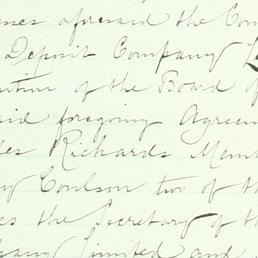 aforesaid the Com
Deposit Company Li
of the Board of
foregoing Agreem
Richards Mem
Coulson two of th
the Secretary of th
Limited and